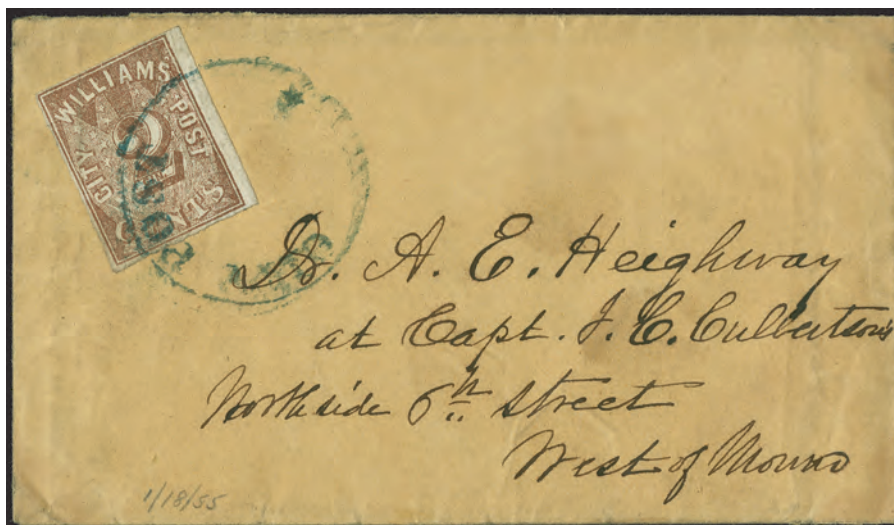 WILLIAMS
CITY POST
2
CENTS
Dr. A. E. Heighway
at Capt. J. C. Culbertson's
North side 6th street
West of Mound
1/18/55